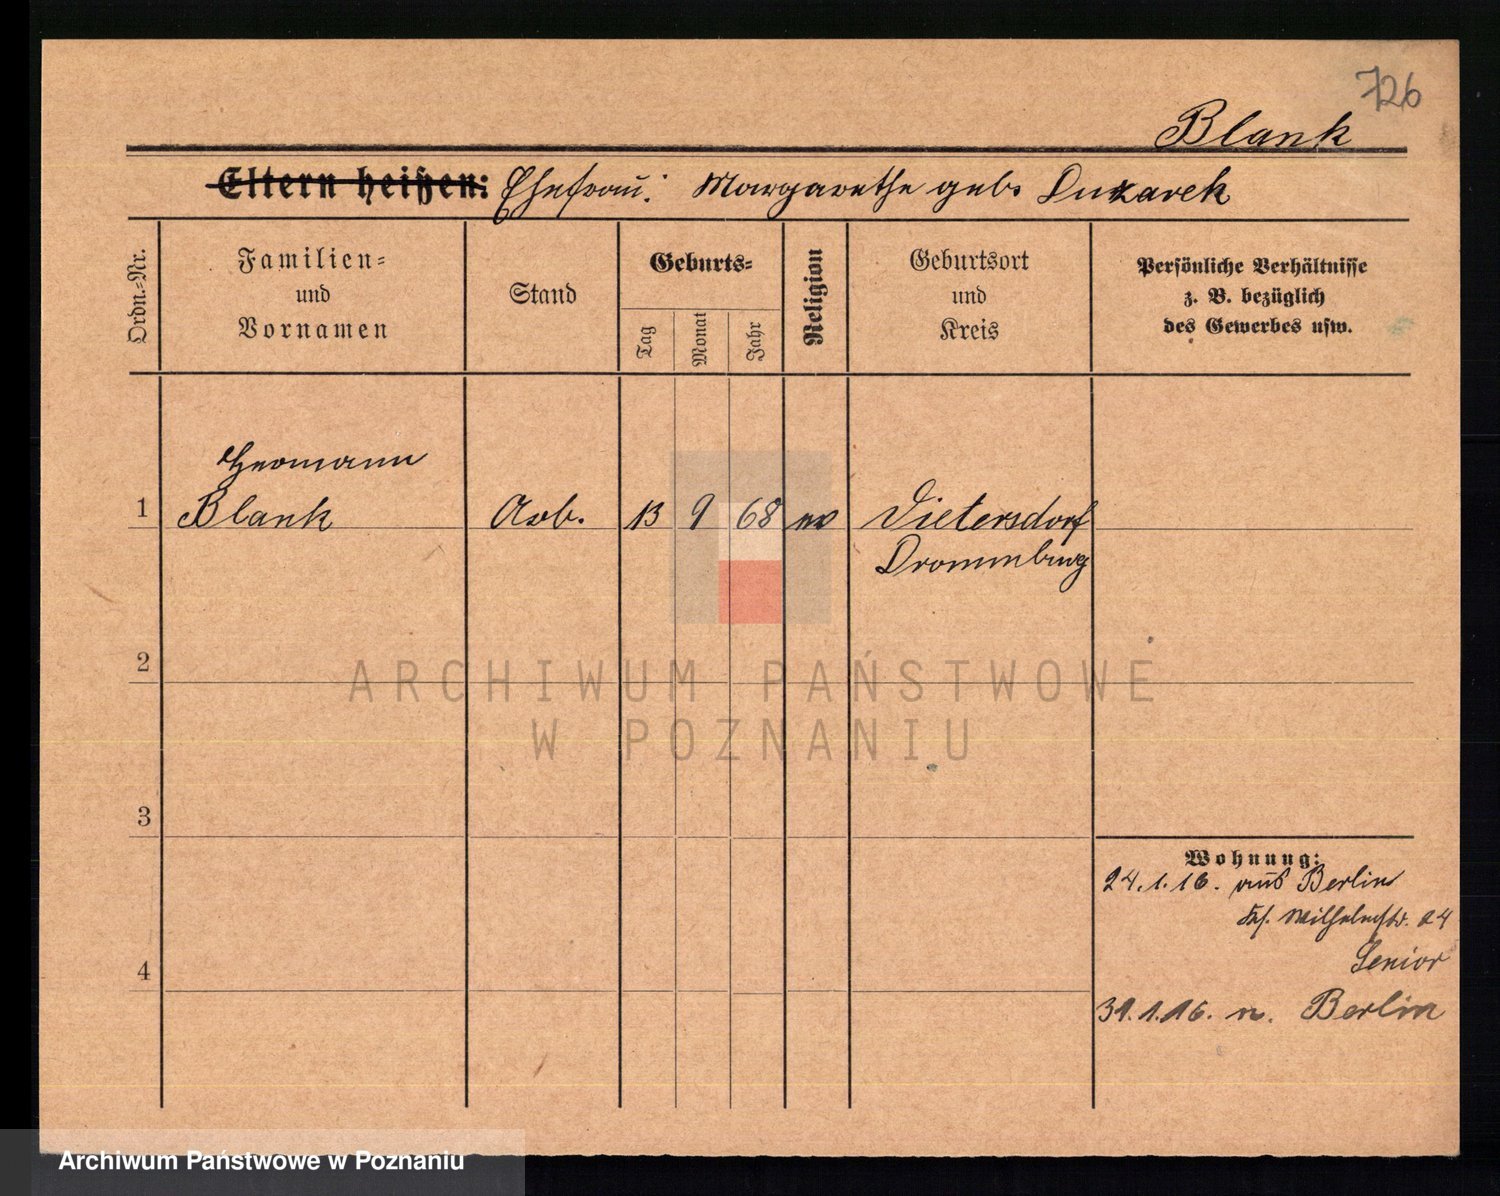 726
Blank
Eltern heißen: Ehefrau: Margarethe geb. Duxarek
Ordn.-Nr.
Familien-
und
Vornamen
Stand
Geburts-
Tag
Monat
Jahr
Religion
Geburtsort
und
Kreis
Persönliche Verhältnisse
z. B. bezüglich
des Gewerbes usw.
Hermann
1 Blank Arb. 13 9 68 ev Dietersdorf
Drammburg
2
3
4
Wohnung:
24.1.16. aus Berlin
Wilhelmstr. 24
Senior
31.1.16. n. Berlin
ARCHIWUM PAŃSTWOWE
W POZNANIU
Archiwum Państwowe w Poznaniu